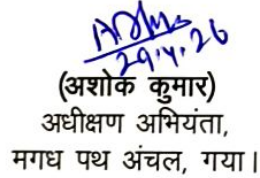 29.4.26
(अशोक कुमार)
अधीक्षण अभियंता,
मगध पथ अंचल, गया।